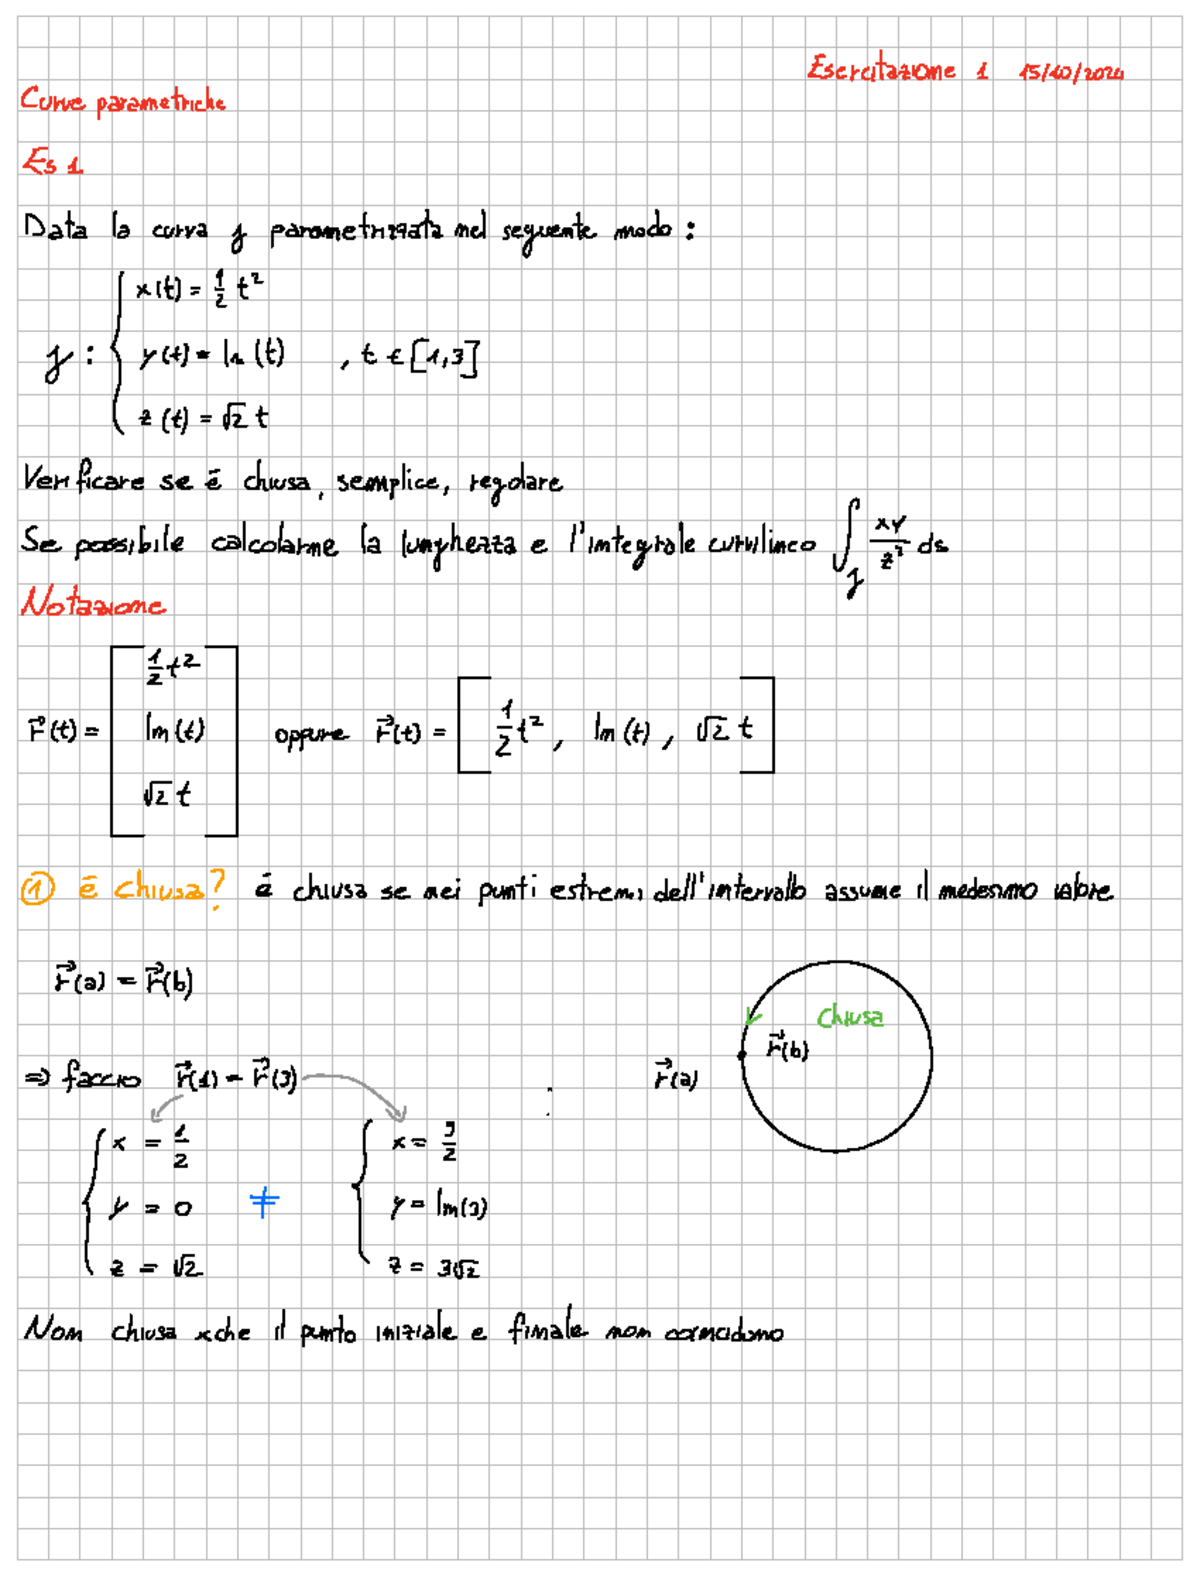 Esercitazione 1 15/10/2024
Curve parametriche
Es 1
Data la curva γ parametrizzata nel seguente modo :
γ : { x(t) = 1/2 t²
y(t) = ln (t) , t ∈ [1,3]
z (t) = √2 t
Verificare se è chiusa, semplice, regolare
Se possibile calcolarne la lunghezza e l'integrale curvilineo ∫_γ xy/z² ds
Notazione
r⃗(t) = [ 1/2 t²
ln (t)
√2 t ]
oppure r⃗(t) = [ 1/2 t² , ln (t) , √2 t ]
① è chiusa? è chiusa se nei punti estremi dell'intervallo assume il medesimo valore
r⃗(a) = r⃗(b)
chiusa
r⃗(a) r⃗(b)
⇒ faccio r⃗(1) = r⃗(3)
{ x = 1/2
y = 0
z = √2
≠
{ x = 9/2
y = ln(3)
z = 3√2
Non chiusa xche il punto iniziale e finale non coincidono